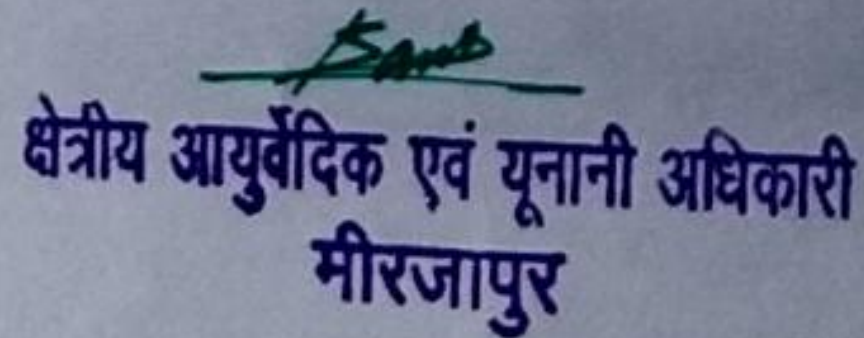 क्षेत्रीय आयुर्वेदिक एवं यूनानी अधिकारी
मीरजापुर